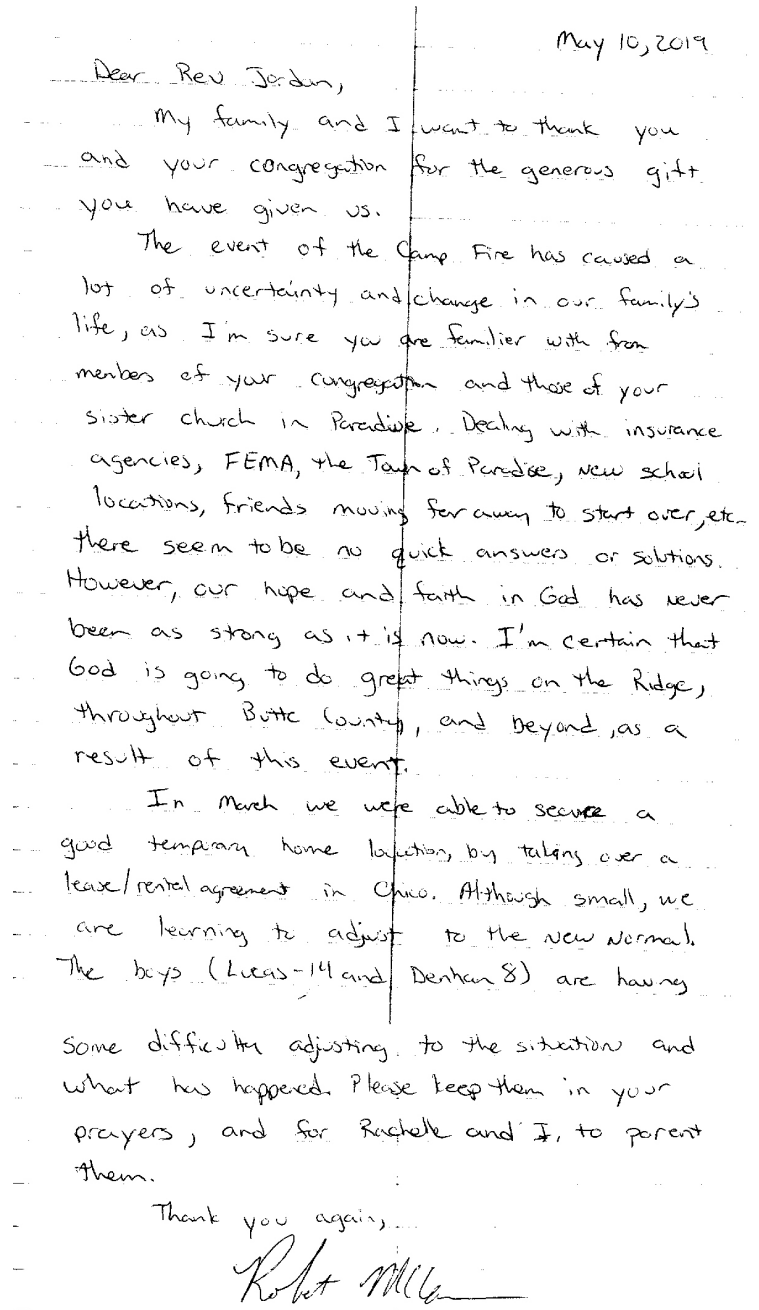 May 10, 2019
Dear Rev Jordan,
My family and I want to thank you
and your congregation for the generous gift
you have given us.
The event of the Camp Fire has caused a
lot of uncertainty and change in our family's
life, as I'm sure you are familier with from
members of your congregation and those of your
sister church in Paradise. Dealing with insurance
agencies, FEMA, the Town of Paradise, new school
locations, friends moving far away to start over, etc-
there seem to be no quick answers or solutions.
However, our hope and faith in God has never
been as strong as it is now. I'm certain that
God is going to do great things on the Ridge,
throughout Butte County, and beyond, as a
result of this event.
In March we were able to secure a
good temporary home location, by taking over a
lease/rental agreement in Chico. Although small, we
are learning to adjust to the new normal.
The boys (Lucas-14 and Denhan 8) are having
some difficulty adjusting to the situation and
what has happened. Please keep them in your
prayers, and for Rachelle and I, to parent
them.
Thank you again,
Robert